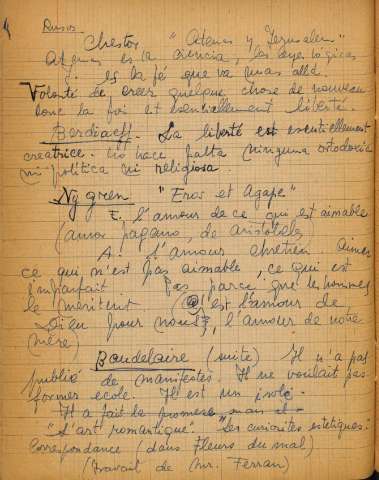 Rusos
Chestov "Atenas y Jerusalem"
Atenas es la ciencia, las leyes lógicas
J. es la fé que va mas allá.
Volonté de créer quelque chose de nouveau
donc la foi est essentiellement liberté.
Berdiaeff. La liberté est essentiellement
creatrice. No hace falta ninguna ortodoxia
ni politica ni religiosa.
Nygren "Eros et Agape"
E. l'amour de ce qui est aimable
(amor pagano, de aristoteles)
A. l'amour chretien. Aimer
ce qui n'est pas aimable, ce qui est
imparfait. Pas parce que les hommes
le meritent (c'est l'amour de
Dieu pour nous, l'amour de notre
mère)
Baudelaire (suite) Il n'a pas
publié de manifestes. Il ne voulait pas
former ecole. Il est un isolé.
Il a fait la mais il
"L'art romantique". "Les curiosités estetiques."
Correspondance (dans Fleurs du mal)
(travail de Mr. Ferran)